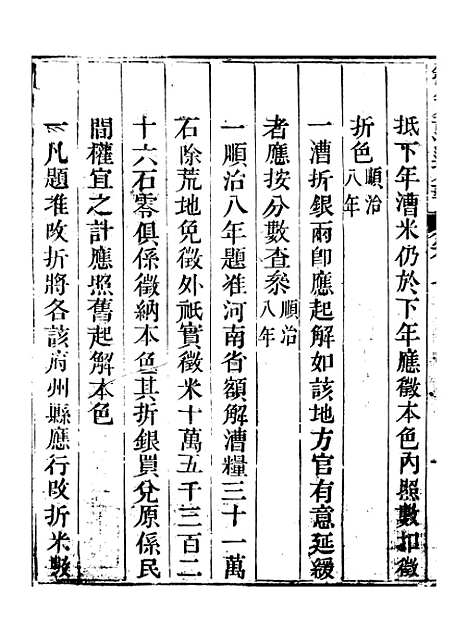 抵下年漕米仍於下年應徵本色內照數扣徵
折色順治八年
一漕折銀兩卽應起解如該地方官有意延緩
者應按分數查叅順治八年
一順治八年題准河南省額解漕糧三十一萬
石除荒地免徵外祇實徵米十萬五千三百二
十六石零俱係徵納本色其折銀買兌原係民
間權宜之計應照舊起解本色
一凡題准改折將各該府州縣應行改折米數